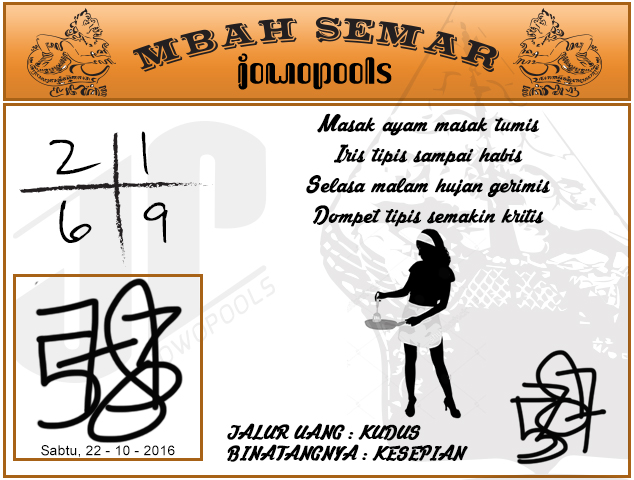 MBAH SEMAR
jowopools
2 1
6 9
Masak ayam masak tumis
Iris tipis sampai habis
Selasa malam hujan gerimis
Dompet tipis semakin kritis
JOWOPOOLS
Sabtu, 22 - 10 - 2016
JALUR UANG : KUDUS
BINATANGNYA : KESEPIAN